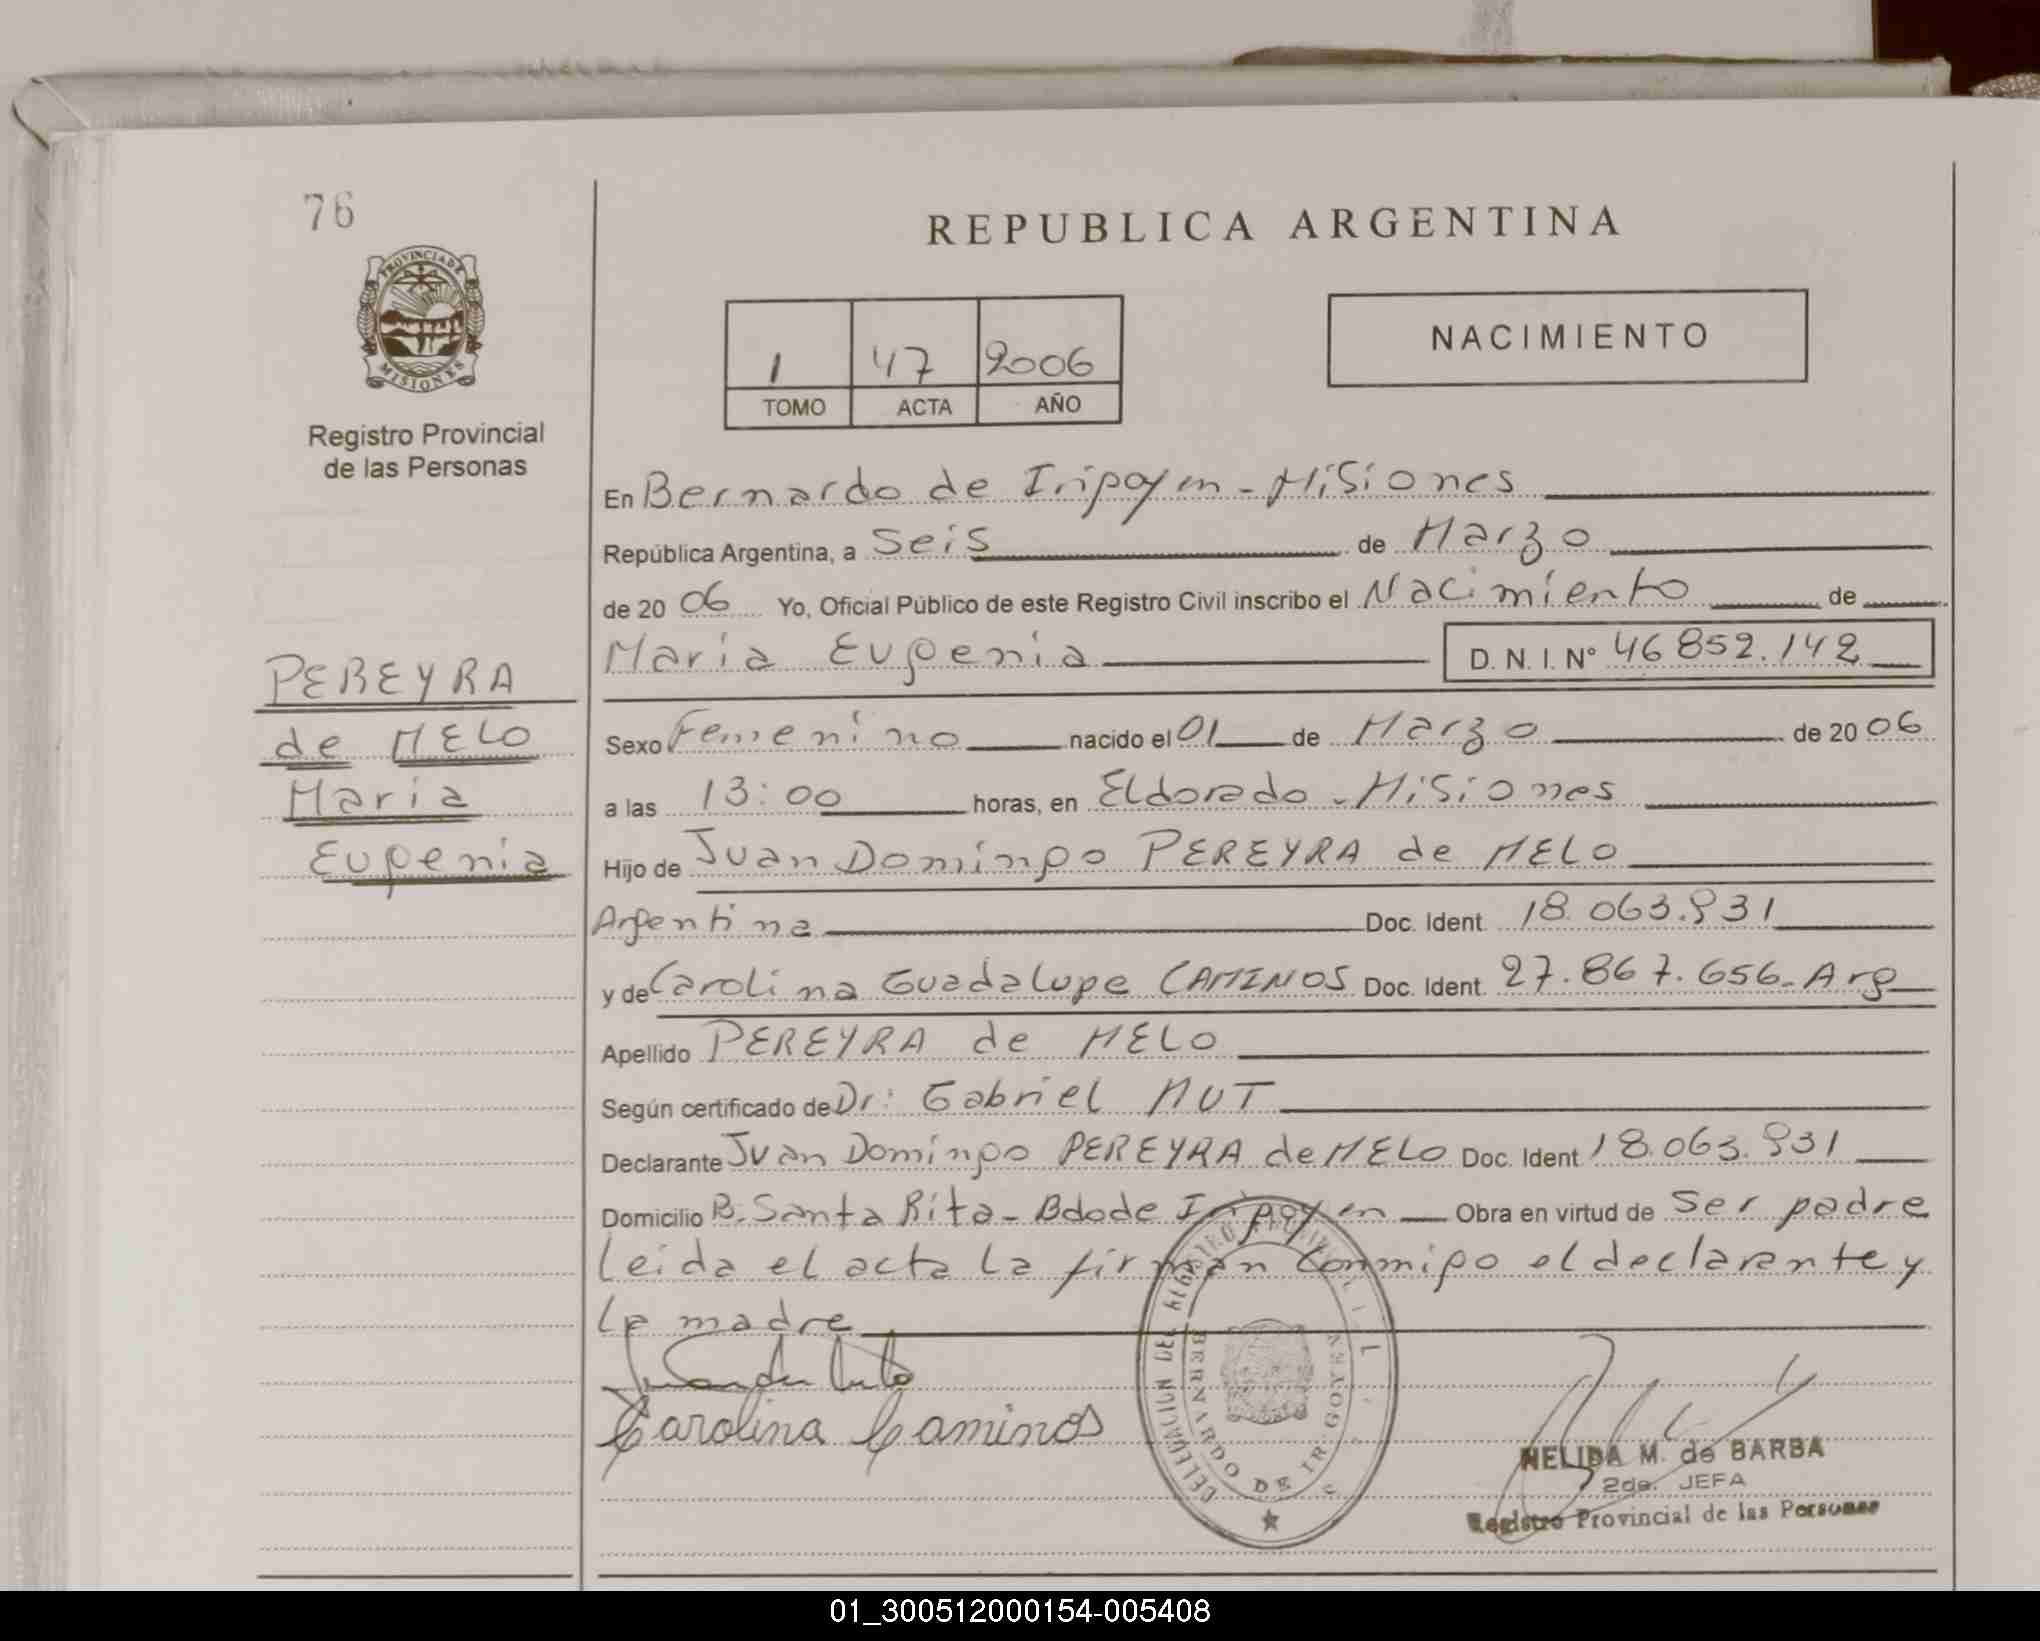 76
REPUBLICA ARGENTINA
PROVINCIA DE
MISIONES
Registro Provincial
de las Personas
1 47 2006
TOMO ACTA AÑO
NACIMIENTO
En Bernardo de Irigoyen - Misiones
República Argentina, a Seis de Marzo
de 20 06 Yo, Oficial Público de este Registro Civil inscribo el Nacimiento de
Maria Eugenia D. N. I. Nº 46852.142
PEREYRA
de MELO
Maria
Eugenia
Sexo Femenino nacido el 01 de Marzo de 20 06
a las 13:00 horas, en Eldorado - Misiones
Hijo de Juan Domingo PEREYRA de MELO
Argentina Doc. Ident. 18.063.931
y de Carolina Guadalupe CAMINOS Doc. Ident. 27.867.656-Arg
Apellido PEREYRA de MELO
Según certificado de Dr: Gabriel MUT
Declarante Juan Domingo PEREYRA de MELO Doc. Ident 18.063.931
Domicilio B. Santa Rita - Bdo de Irigoyen Obra en virtud de Ser padre
Leida el acta la firman conmigo el declarante y
la madre
Carolina Caminos
DELEGACION DEL REGISTRO PROVINCIAL
BERNARDO DE IRIGOYEN
NELIDA M. de BARBA
2da. JEFA
Registro Provincial de las Personas
01_300512000154-005408